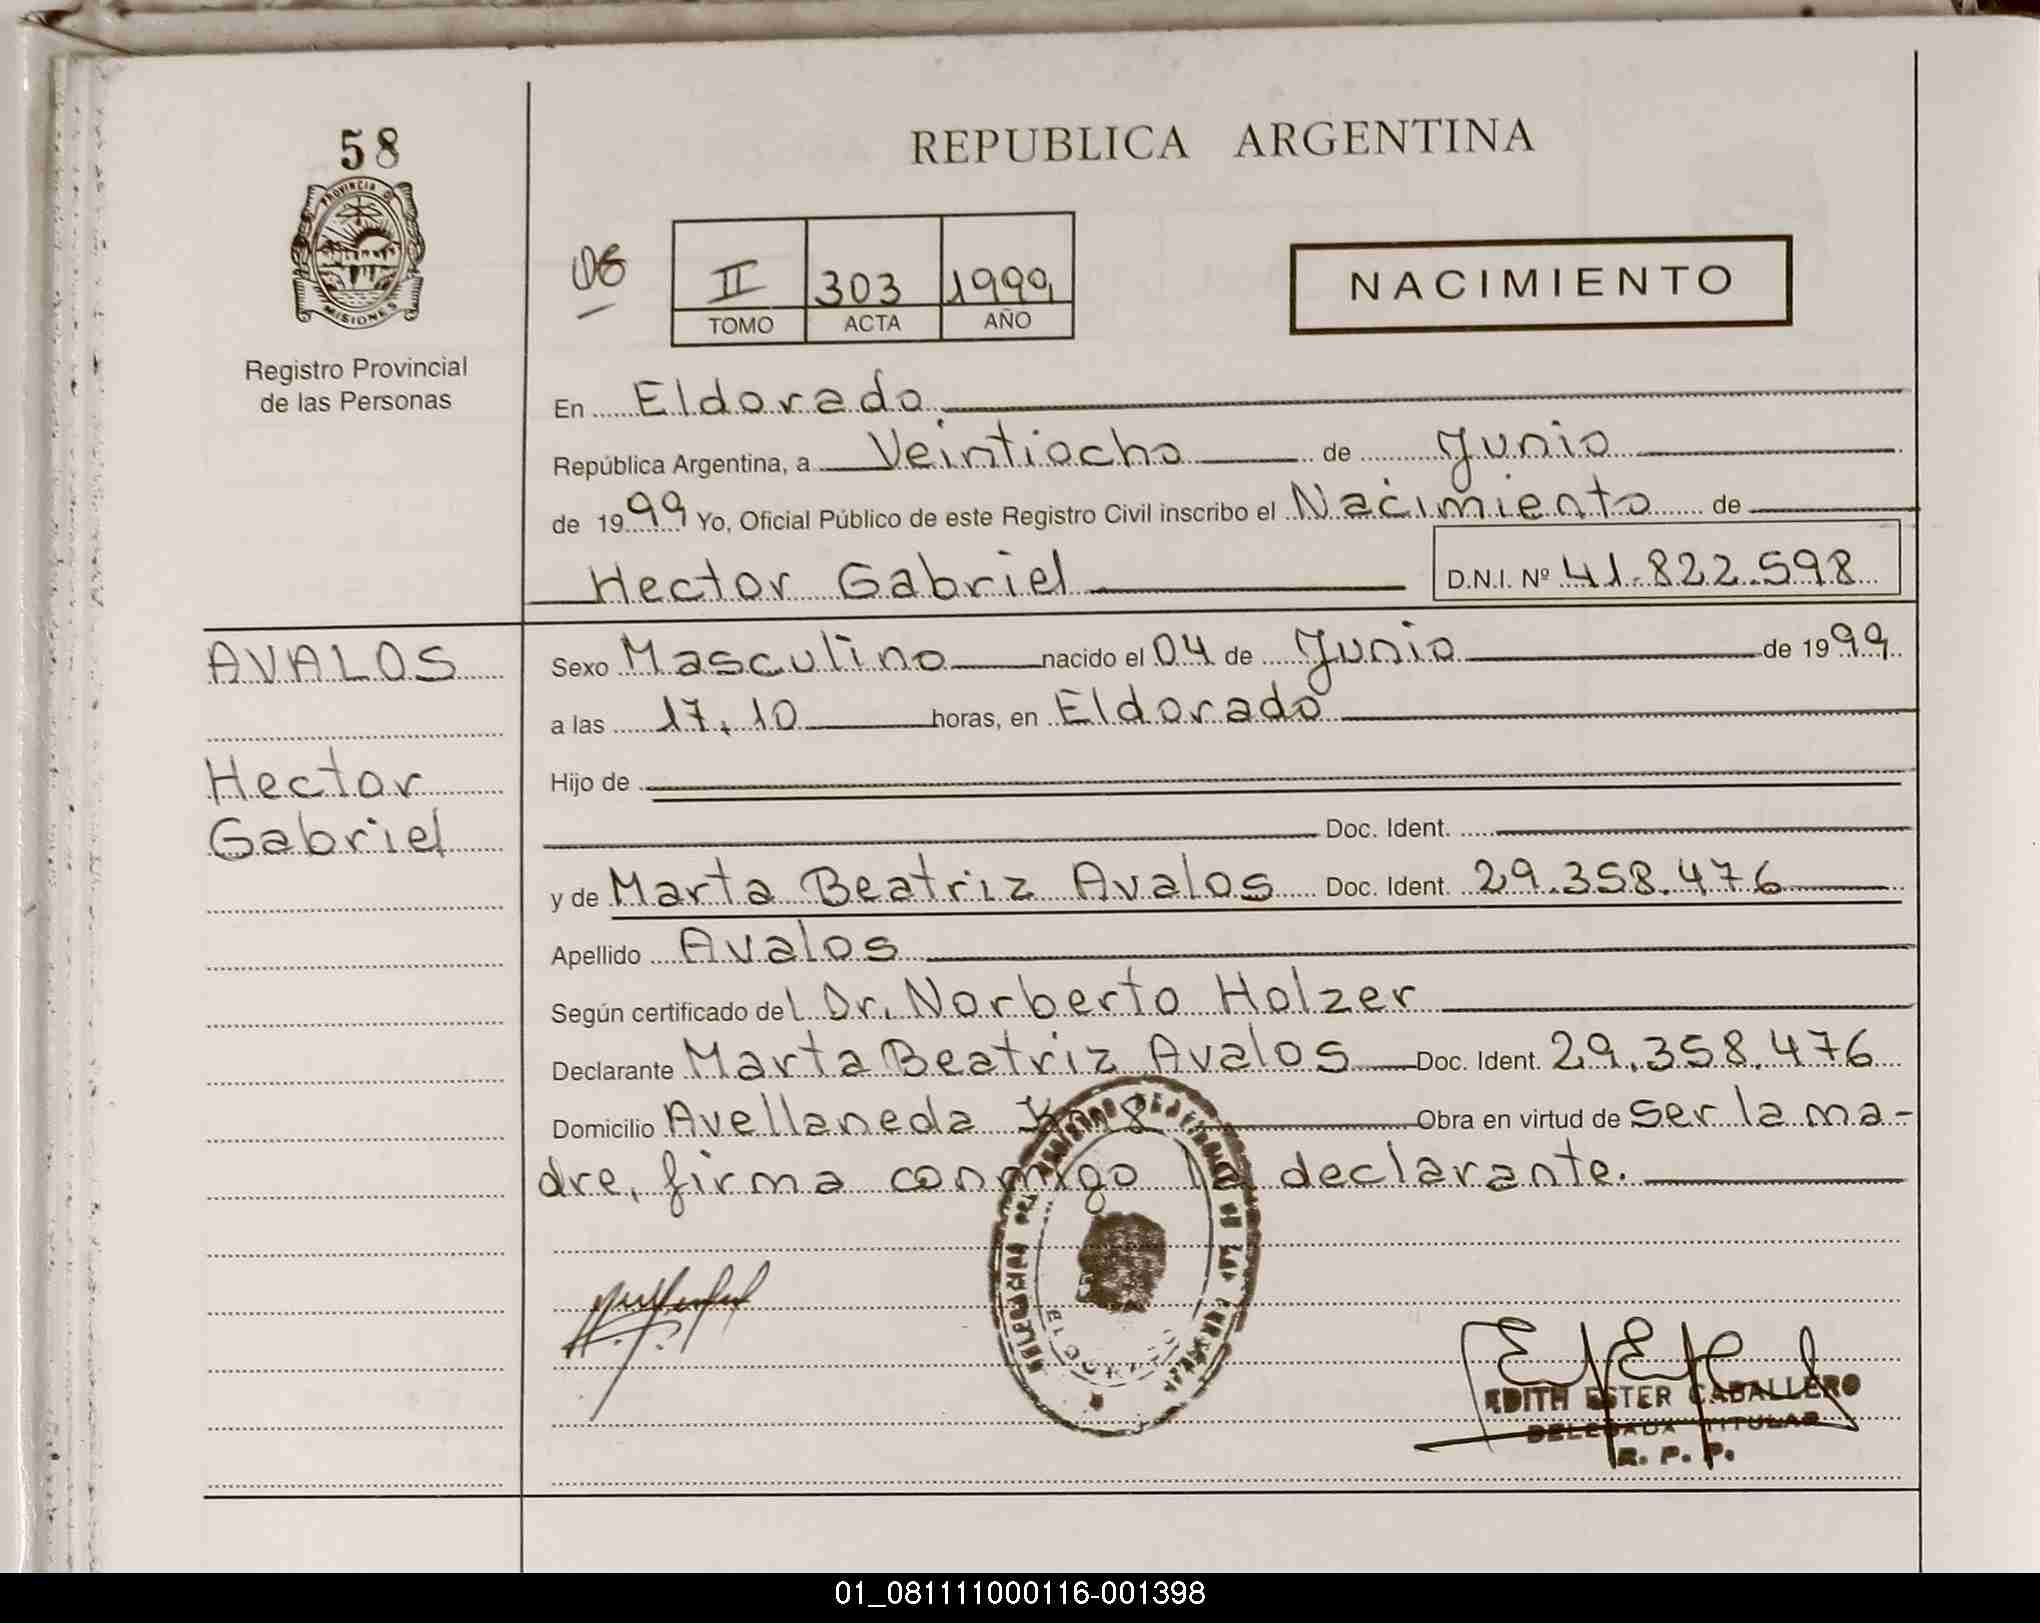 58
PROVINCIA DE
MISIONES
Registro Provincial
de las Personas
REPUBLICA ARGENTINA
06
II 303 1999
TOMO ACTA AÑO
NACIMIENTO
En Eldorado
República Argentina, a Veintiocho de Junio
de 1999 Yo, Oficial Público de este Registro Civil inscribo el Nacimiento de
Hector Gabriel D.N.I. Nº 41.822.598
AVALOS
Hector
Gabriel
Sexo Masculino nacido el 04 de Junio de 1999
a las 17,10 horas, en Eldorado
Hijo de
Doc. Ident.
y de Marta Beatriz Avalos Doc. Ident. 29.358.476
Apellido Avalos
Según certificado del Dr. Norberto Holzer
Declarante Marta Beatriz Avalos Doc. Ident. 29.358.476
Domicilio Avellaneda Km 8 Obra en virtud de ser la ma-
dre, firma conmigo la declarante.
EDITH ESTER CABALLERO
DELEGADA TITULAR
R. P. P.
01_081111000116-001398